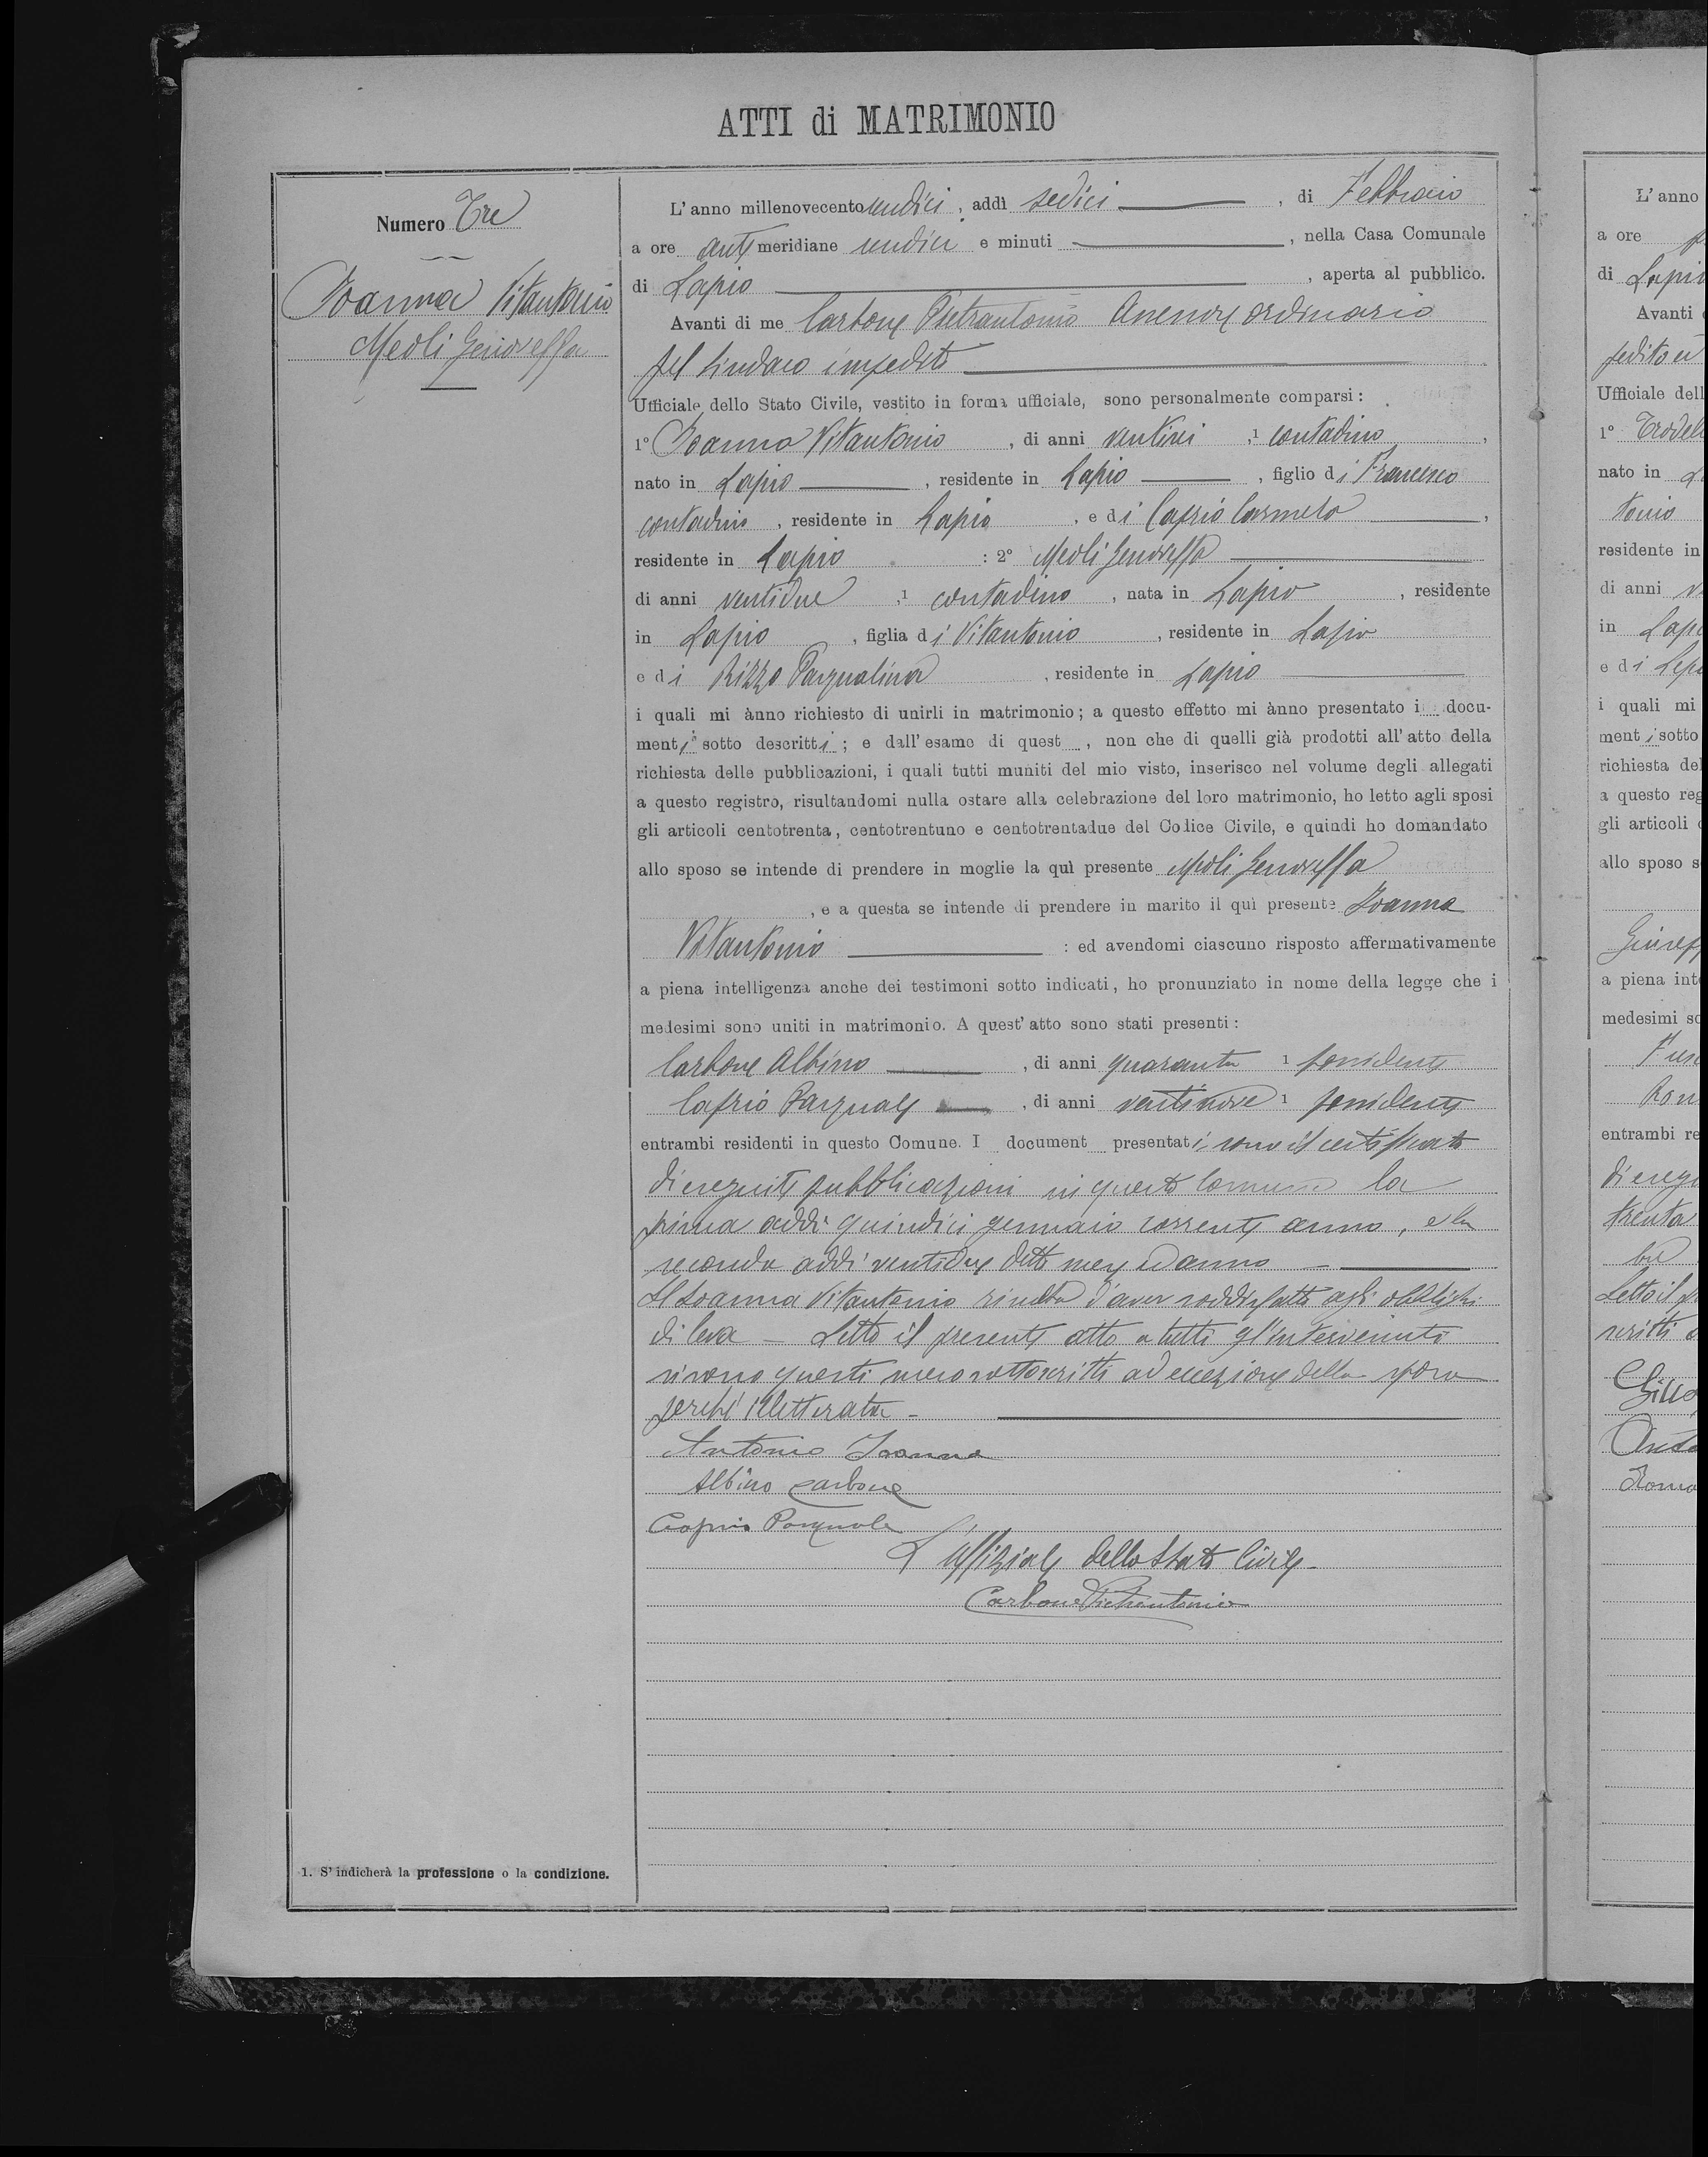 ATTI di MATRIMONIO
Numero Tre
Ioanna Vitantonio
Meoli Genoveffa
1. S'indicherà la professione o la condizione.
L'anno millenovecento undici, addì sedici, di Febbraio
a ore anti meridiane undici e minuti , nella Casa Comunale
di Lapio , aperta al pubblico.
Avanti di me Carbone Pietrantonio Assessore ordinario
pel Sindaco impedito
Ufficiale dello Stato Civile, vestito in forma ufficiale, sono personalmente comparsi:
1° Ioanna Vitantonio, di anni ventisei ,1 contadino,
nato in Lapio, residente in Lapio, figlio di Francesco
contadino, residente in Lapio, e di Caprio Carmela,
residente in Lapio : 2° Meoli Genoveffa
di anni ventidue ,1 contadina, nata in Lapio, residente
in Lapio, figlia di Vitantonio, residente in Lapio
e di Rizzo Pasqualina, residente in Lapio
i quali mi ànno richiesto di unirli in matrimonio; a questo effetto mi ànno presentato i docu-
menti sotto descritti; e dall'esame di quest , non che di quelli già prodotti all'atto della
richiesta delle pubblicazioni, i quali tutti muniti del mio visto, inserisco nel volume degli allegati
a questo registro, risultandomi nulla ostare alla celebrazione del loro matrimonio, ho letto agli sposi
gli articoli centotrenta, centotrentuno e centotrentadue del Codice Civile, e quindi ho domandato
allo sposo se intende di prendere in moglie la quì presente Meoli Genoveffa
, e a questa se intende di prendere in marito il quì presente Ioanna
Vitantonio : ed avendomi ciascuno risposto affermativamente
a piena intelligenza anche dei testimoni sotto indicati, ho pronunziato in nome della legge che i
medesimi sono uniti in matrimonio. A quest'atto sono stati presenti:
Carbone Albino, di anni quaranta 1 possidente
Caprio Pasquale, di anni ventinove 1 possidente
entrambi residenti in questo Comune. I document presentati sono il certificato
di eseguite pubblicazioni in questo Comune la
prima addì quindici gennaio corrente anno, e la
seconda addì ventidue detto mese ed anno
Il Ioanna Vitantonio risulta d'aver soddisfatto agli obblighi
di leva - Letto il presente atto a tutti gl'intervenuti
si sono questi meco sottoscritti ad eccezione della sposa
perché illetterata -
Antonio Ioanna
Albino Carbone
Caprio Pasquale
L'Uffiziale dello Stato Civile -
Carbone Pietrantonio
L'anno
a ore
di Lapio
Avanti
Ufficiale dell
1°
nato in
residente in
di anni
in
e di
i quali mi
menti sotto
richiesta del
a questo reg
gli articoli
allo sposo s
a piena int
medesimi so
entrambi re
trenta